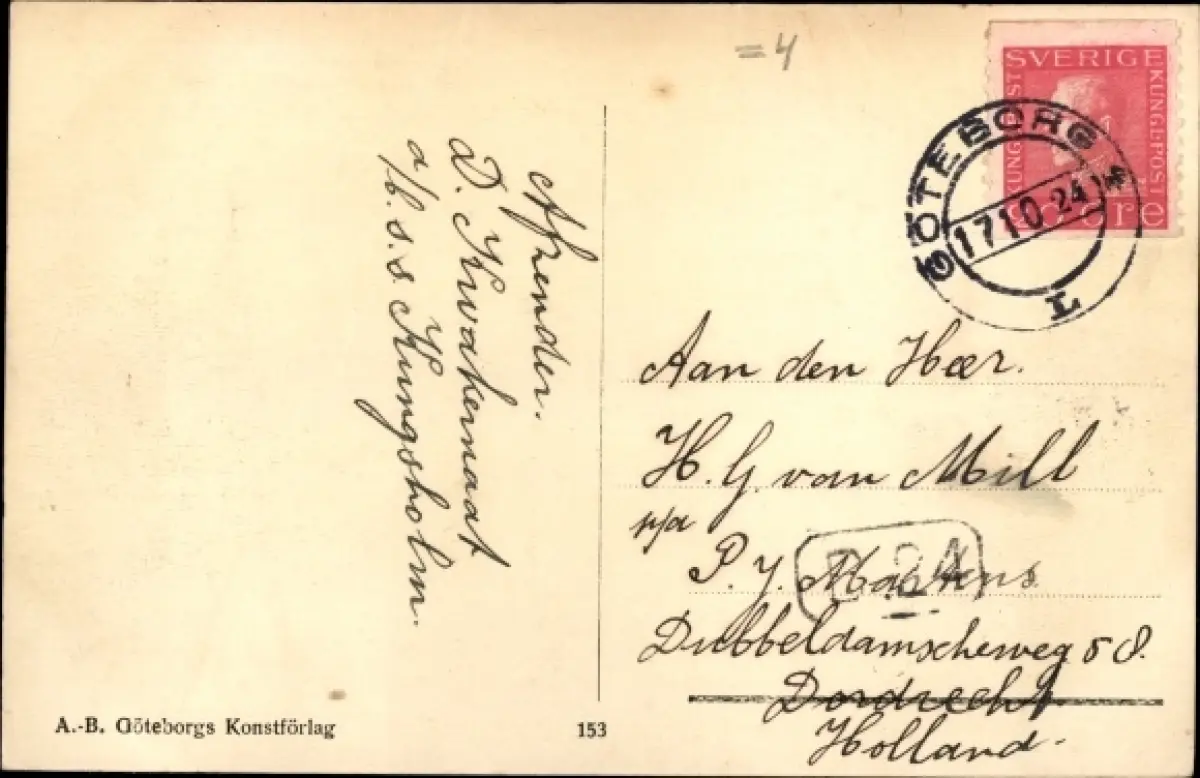 =4
SVERIGE
KUNGL:POST
KUNGL:POST
öre
GÖTEBORG
1710 24
L
Afzender.
D. Kwakernaat
a/b. s.s. Kungsholm.
Aan den Heer.
H. G. van Mill
p/a
P. J. Maktens
Dubbeldamscheweg 58.
Dordrecht
Holland.
A.-B. Göteborgs Konstförlag
153